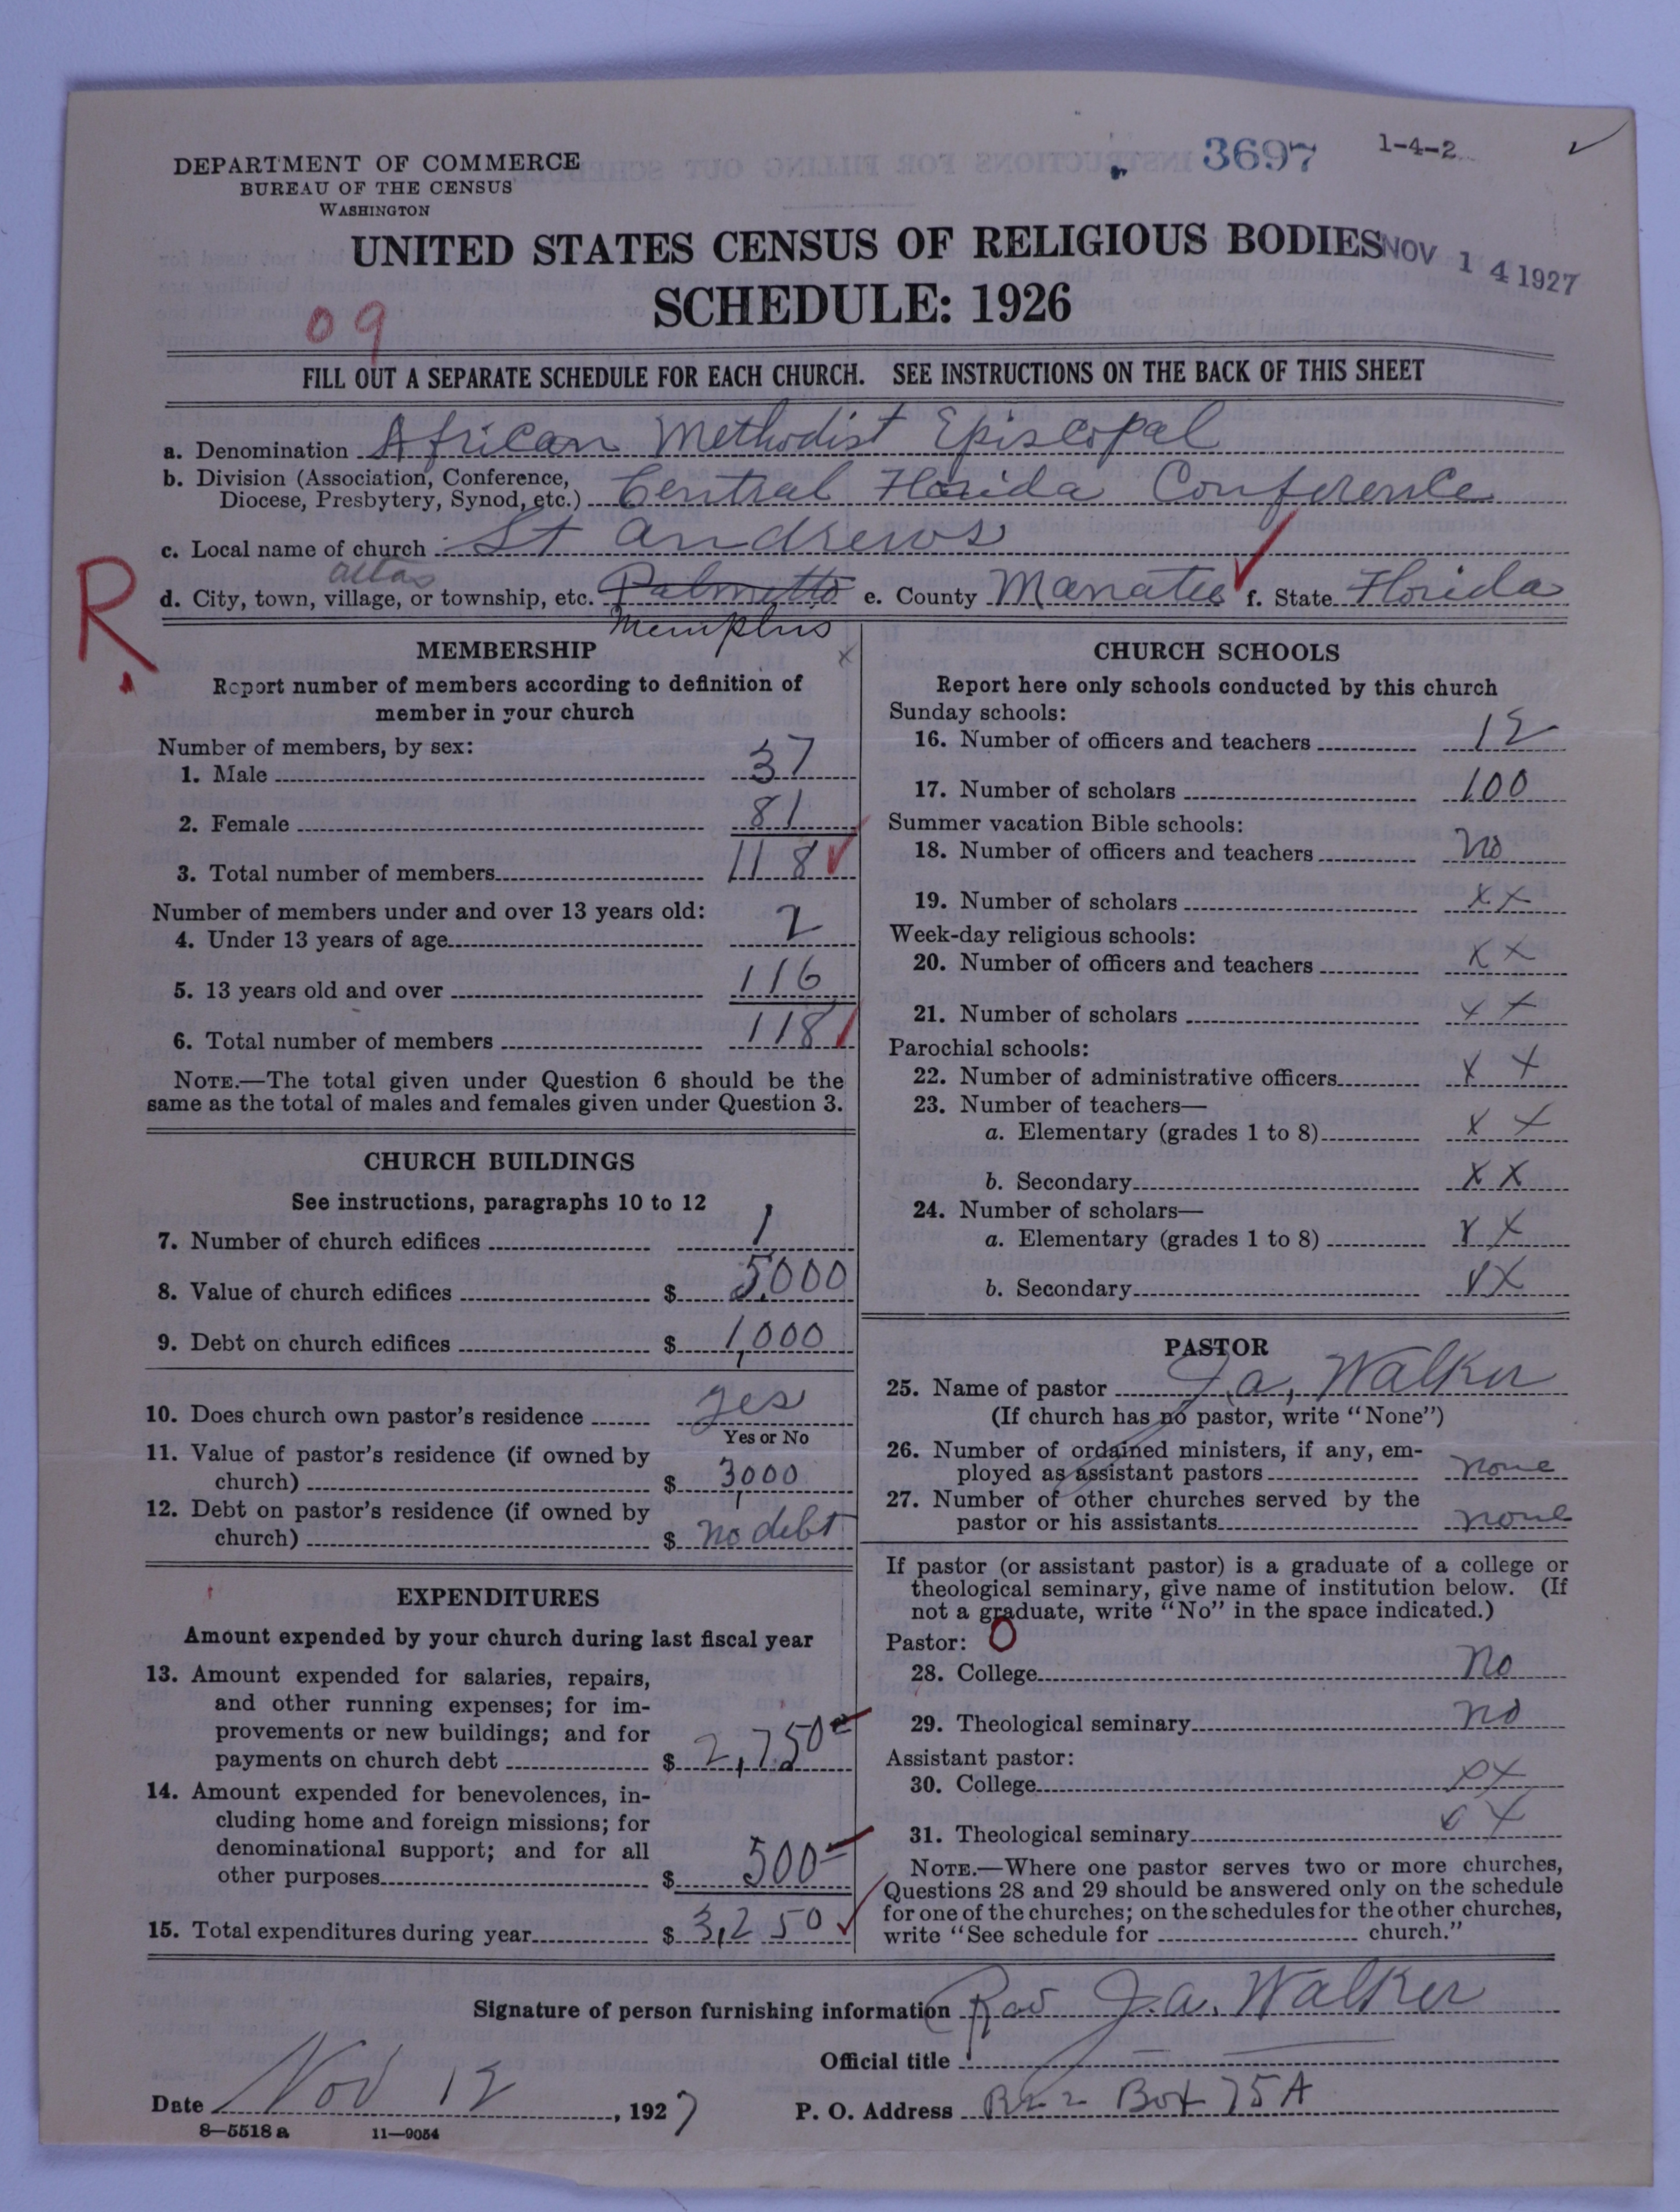 3697 1-4-2
DEPARTMENT OF COMMERCE
BUREAU OF THE CENSUS
WASHINGTON
UNITED STATES CENSUS OF RELIGIOUS BODIES
NOV 14 1927
SCHEDULE: 1926
09
FILL OUT A SEPARATE SCHEDULE FOR EACH CHURCH. SEE INSTRUCTIONS ON THE BACK OF THIS SHEET
a. Denomination African Methodist Episcopal
b. Division (Association, Conference,
Diocese, Presbytery, Synod, etc.) Central Florida Conference
c. Local name of church St Andrews
R.
d. City, town, village, or township, etc. Palmetto e. County Manatee f. State Florida
Memphis
MEMBERSHIP
Report number of members according to definition of
member in your church
Number of members, by sex:
1. Male 37
2. Female 81
3. Total number of members 118
Number of members under and over 13 years old:
4. Under 13 years of age 2
5. 13 years old and over 116
6. Total number of members 118
NOTE.—The total given under Question 6 should be the
same as the total of males and females given under Question 3.
CHURCH BUILDINGS
See instructions, paragraphs 10 to 12
7. Number of church edifices 1
8. Value of church edifices $ 5,000
9. Debt on church edifices $ 1,000
10. Does church own pastor's residence yes
Yes or No
11. Value of pastor's residence (if owned by
church) $ 3,000
12. Debt on pastor's residence (if owned by
church) $ no debt
EXPENDITURES
Amount expended by your church during last fiscal year
13. Amount expended for salaries, repairs,
and other running expenses; for im-
provements or new buildings; and for
payments on church debt $ 2,750
14. Amount expended for benevolences, in-
cluding home and foreign missions; for
denominational support; and for all
other purposes $ 500
15. Total expenditures during year $ 3,250
CHURCH SCHOOLS
Report here only schools conducted by this church
Sunday schools:
16. Number of officers and teachers 12
17. Number of scholars 100
Summer vacation Bible schools:
18. Number of officers and teachers no
19. Number of scholars x x
Week-day religious schools:
20. Number of officers and teachers x x
21. Number of scholars x x
Parochial schools:
22. Number of administrative officers x x
23. Number of teachers—
a. Elementary (grades 1 to 8) x x
b. Secondary x x
24. Number of scholars—
a. Elementary (grades 1 to 8) x x
b. Secondary x x
PASTOR
25. Name of pastor J. a, Walker
(If church has no pastor, write "None")
26. Number of ordained ministers, if any, em-
ployed as assistant pastors none
27. Number of other churches served by the
pastor or his assistants none
If pastor (or assistant pastor) is a graduate of a college or
theological seminary, give name of institution below. (If
not a graduate, write "No" in the space indicated.)
Pastor: 0
28. College no
29. Theological seminary no
Assistant pastor:
30. College x x
31. Theological seminary x x
NOTE.—Where one pastor serves two or more churches,
Questions 28 and 29 should be answered only on the schedule
for one of the churches; on the schedules for the other churches,
write "See schedule for church."
Signature of person furnishing information Rev J. a. Walker
Official title
Date Nov 12, 1927 P. O. Address Box 75A
8—5518 a 11—9054